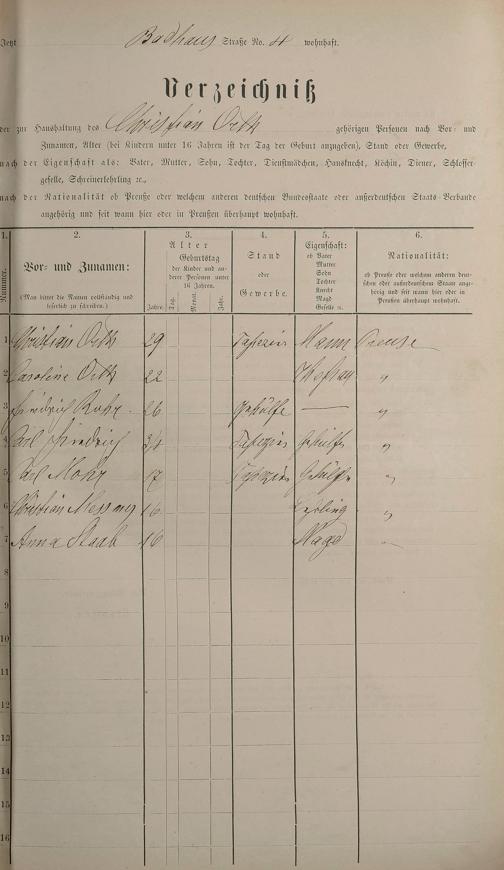 Jetzt Badhaus Straße No. 4 wohnhaft.
Verzeichniß
der zur Haushaltung des Christian Orth gehörigen Personen nach Vor- und
Zunamen, Alter (bei Kindern unter 16 Jahren ist der Tag der Geburt anzugeben), Stand oder Gewerbe,
nach der Eigenschaft als: Vater, Mutter, Sohn, Tochter, Dienstmädchen, Hausknecht, Köchin, Diener, Schlosser-
geselle, Schreinerlehrling ꝛc.,
nach der Nationalität ob Preuße oder welchem anderen deutschen Bundesstaate oder außerdeutschen Staats-Verbande
angehörig und seit wann hier oder in Preußen überhaupt wohnhaft.
1. 2. 3. 4. 5. 6.
Nummer.
Vor- und Zunamen:
(Man bittet die Namen vollständig und
leserlich zu schreiben.)
Alter
Geburtstag
der Kinder und an-
derer Personen unter
16 Jahren.
Jahre. Tag. Monat. Jahr.
Stand
oder
Gewerbe.
Eigenschaft:
ob Vater
Mutter
Sohn
Tochter
Knecht
Magd
Geselle ꝛc.
Nationalität:
ob Preuße oder welchem anderen deut-
schen oder außerdeutschen Staate ange-
hörig und seit wann hier oder in
Preußen überhaupt wohnhaft.
1 Christian Orth 29 Tapezier Mann Preuse
2 Caroline Orth 22 Ehefrau "
3 Friedrich Rohr 26 Gehülfe — "
4 Carl Friedrich 34 Tapezier Gehülfe "
5 Carl Mohr 17 Tapezier Gehülfe "
6 Christian 16 Lehrling "
7 Anna Staab 16 Magd "
8
9
10
11
12
13
14
15
16